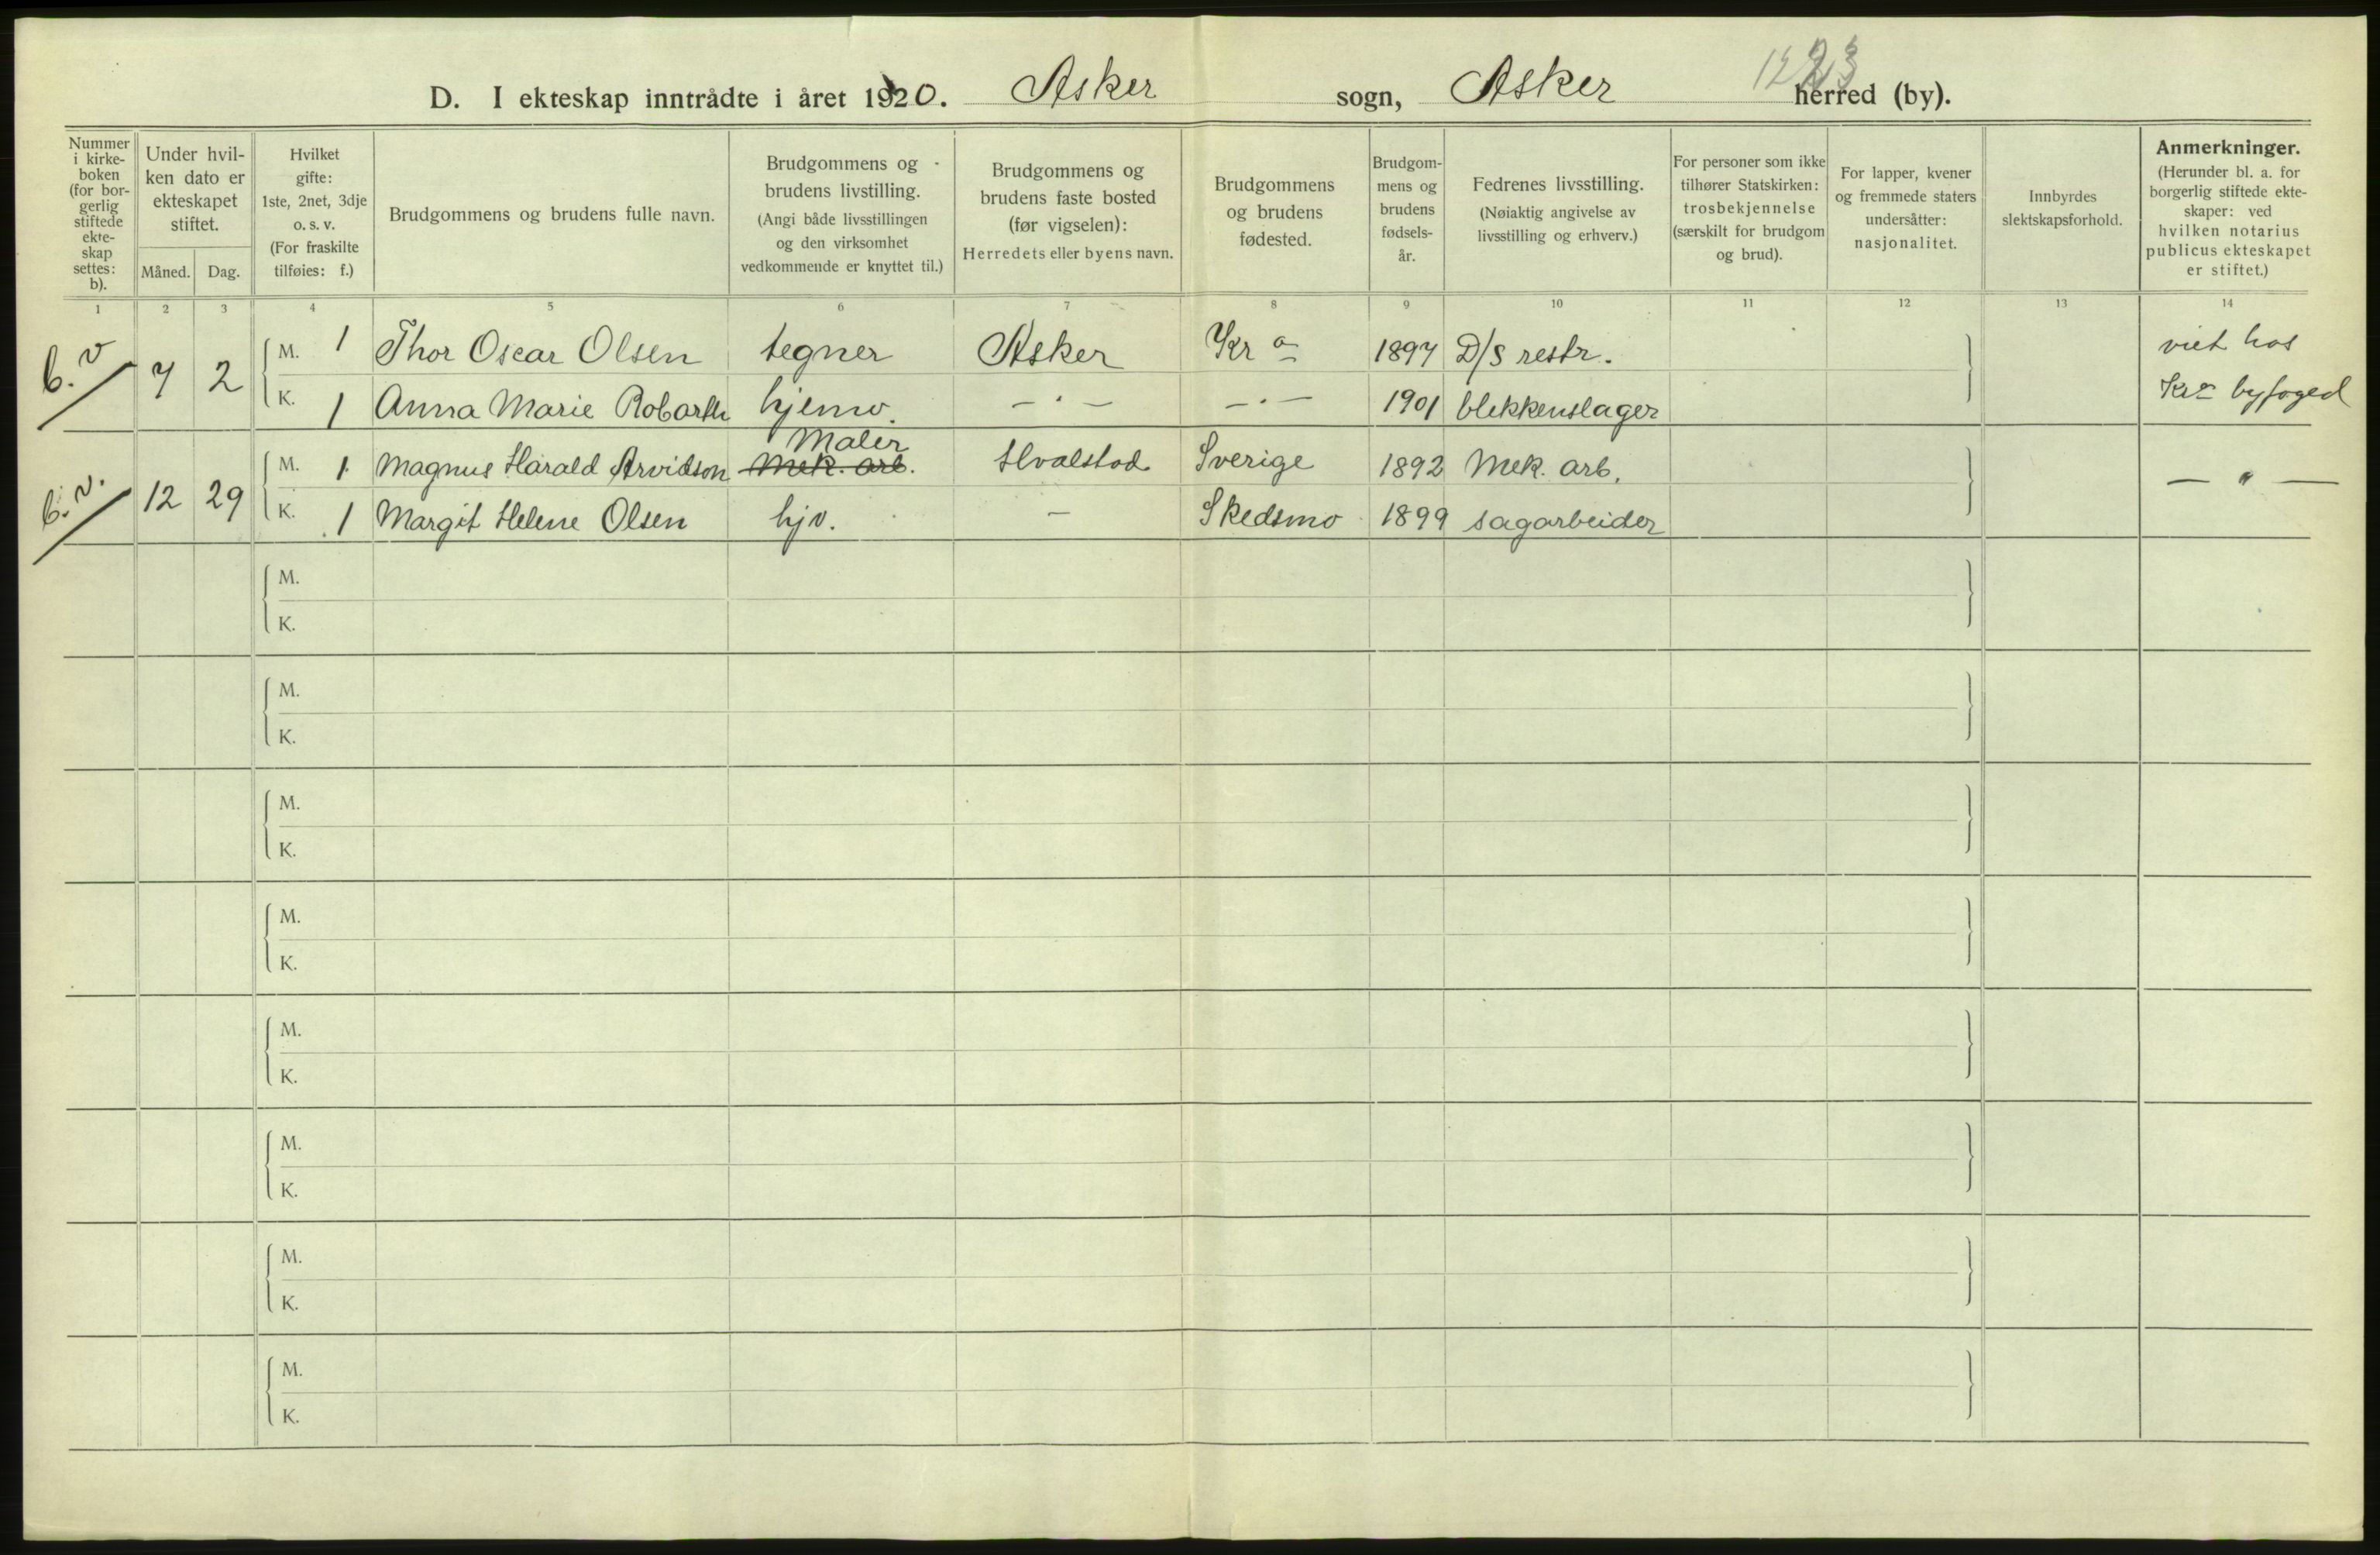 D. I ekteskap inntrådte i året 1920. Asker sogn, Asker herred (by).
Nummer i kirke- boken (for bor- gerlig stiftede ekte- skap settes: b).
Under hvil- ken dato er ekteskapet stiftet.
Måned. Dag.
Hvilket gifte: 1ste, 2net, 3dje o. s. v. (For fraskilte tilføies: f.)
Brudgommens og brudens fulle navn.
Brudgommens og brudens livstilling. (Angi både livsstillingen og den virksomhet vedkommende er knyttet til.)
Brudgommens og brudens faste bosted (før vigselen): Herredets eller byens navn.
Brudgommens og brudens fødested.
Brudgom- mens og brudens fødsels- år.
Fedrenes livsstilling. (Nøiaktig angivelse av livsstilling og erhverv.)
For personer som ikke tilhører Statskirken: trosbekjennelse (særskilt for brudgom og brud).
For lapper, kvener og fremmede staters undersåtter: nasjonalitet.
Innbyrdes slektskapsforhold.
Anmerkninger. (Herunder bl. a. for borgerlig stiftede ekte- skaper: ved hvilken notarius publicus ekteskapet er stiftet.)
1 2 3 4 5 6 7 8 9 10 11 12 13 14
b.v 7 2 M. 1 Thor Oscar Olsen tegner Asker Kra 1897 D/S restr. viet hos
K. 1 Anna Marie Robarth hjemv. — · — — · — 1901 blekkenslager Kra byfoged
Maler
b.v. 12 29 M. 1 Magnus Harald Arvidson Mek. arb. Hvalstad Sverige 1892 Mek. arb. — " —
K. 1 Margit Helene Olsen hjv. — Skedsmo 1899 sagarbeider
M.
K.
M.
K.
M.
K.
M.
K.
M.
K.
M.
K.
M.
K.
M.
K.